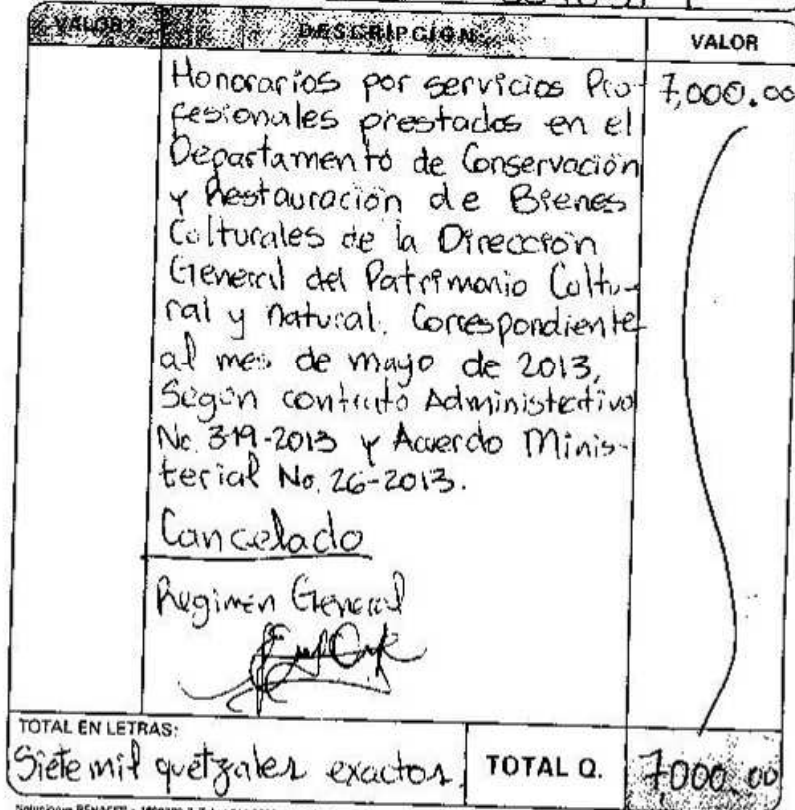 VALOR DESCRIPCION VALOR
Honorarios por servicios Pro- 7,000.00
fesionales prestados en el
Departamento de Conservación
y Restauración de Bienes
Culturales de la Dirección
General del Patrimonio Cultu-
ral y natural. Correspondiente
al mes de mayo de 2013,
Según contrato Administrativo
No. 319-2013 y Acuerdo Minis-
terial No. 26-2013.
Cancelado
Regimen General
TOTAL EN LETRAS:
Siete mil quetzales exactos. TOTAL Q. 7000.00